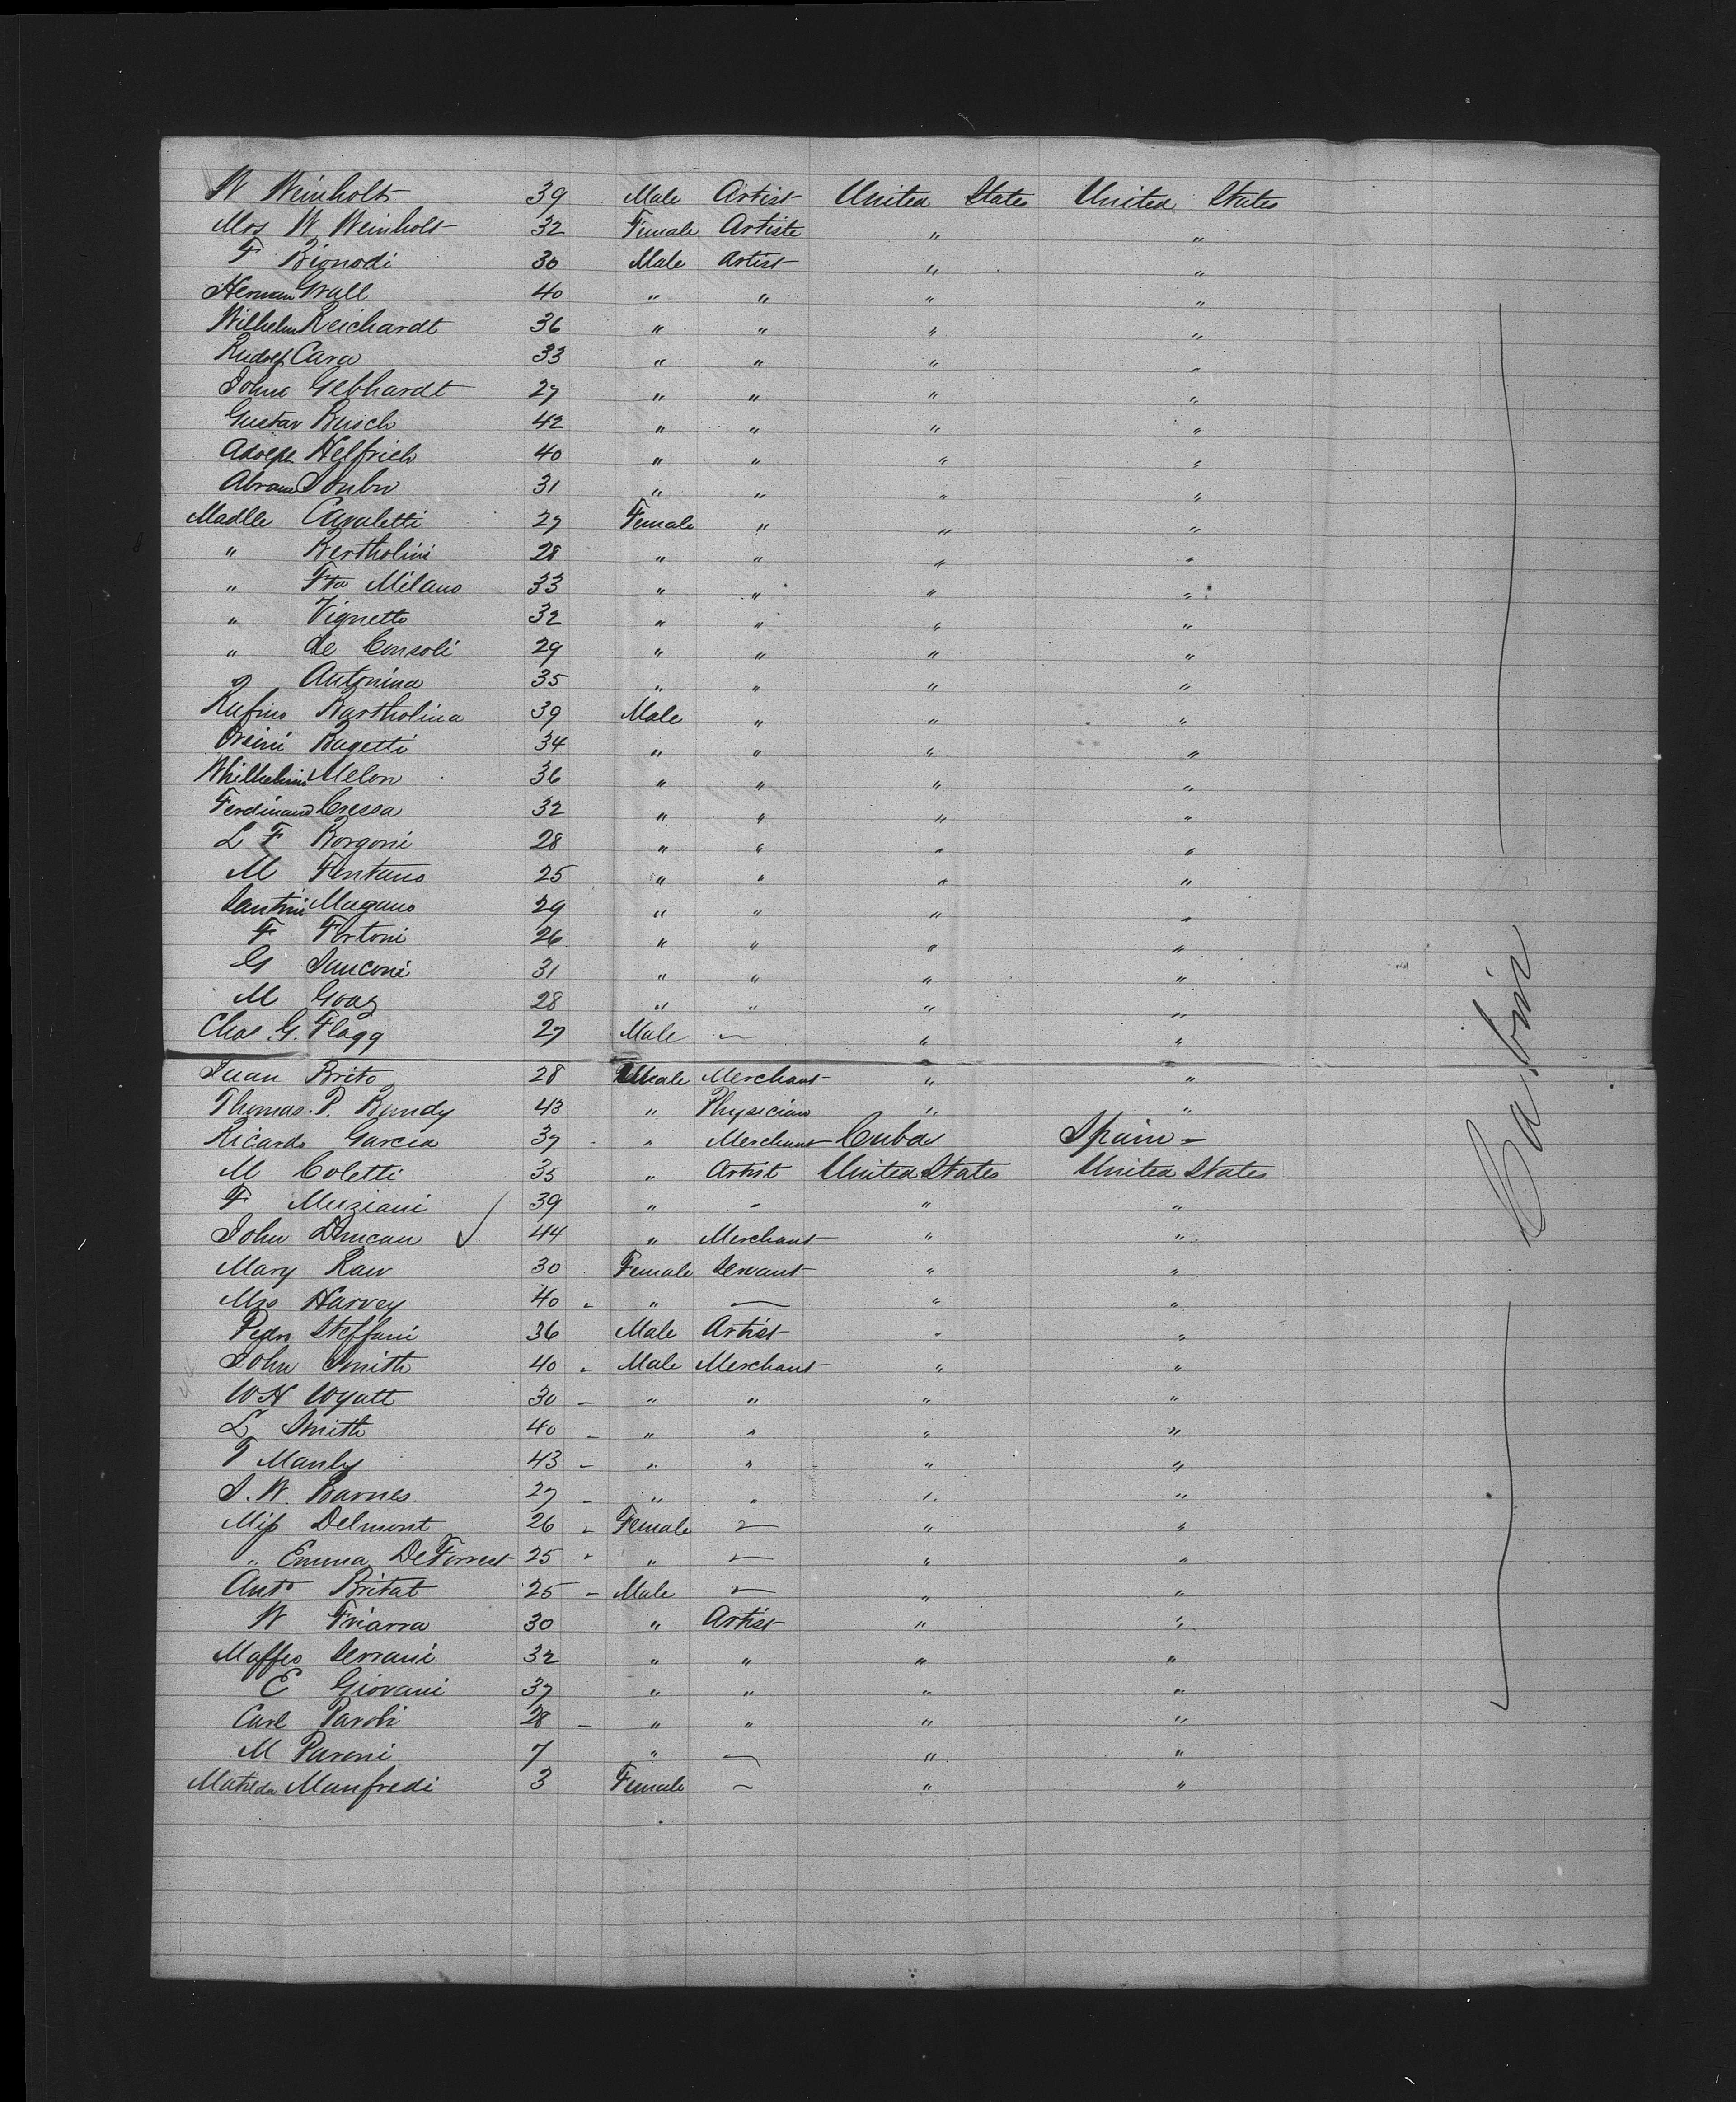 W Weinholt 39 Male Artist United States United States
Mrs W Weinholt 32 Female Artiste " "
F Bionodi 30 Male Artist " "
Herman Grall 40 " " " "
Wilhelm Reichardt 36 " " " "
Rudolf Cara 33 " " " "
John Gebhardt 27 " " " "
Gustav Busch 42 " " " "
Adolph Helfrich 40 " " " "
Abram 31 " " " "
Madlle Cavaletti 27 Female " " "
" Bertholini 28 " " " "
" Fta Milano 33 " " " "
" Vignetto 32 " " " "
" de Consoli 29 " " " "
" Antonina 35 " " " "
Rufino Bartholina 39 Male " " "
Orsini Bugetti 34 " " " "
Whilhelmi Melon 36 " " " "
Ferdinand Cressa 32 " " " "
L F Borgoni 28 " " " "
M Fentano 25 " " " "
Santini Magano 29 " " " "
F Fortoni 26 " " " "
G Janconi 31 " " " "
M Goaz 28 " " " "
Chas. G. Flagg 27 Male — " "
Juan Brito 28 Male Merchant " "
Thomas. P. Bundy 43 " Physician " "
Ricardo Garcia 37 " Merchant Cuba Spain
M Coletti 35 " Artist United States United States
F Muziani 39 " " " "
John Duncan ✓ 44 " Merchant " "
Mary Raw 30 Female Servant " "
Mrs Harvey 40 " — " "
Pedro Steffani 36 Male Artist " "
John Smith 40 Male Merchant " "
W H Wyatt 30 " " " "
L Smith 40 " " " "
T Manly 43 " " " "
J. W. Barnes 27 " " " "
Miss Delmont 26 Female — " "
" Emma DeForrest 25 " — " "
Anto Britat 25 Male — " "
W Friarra 30 " Artist " "
Maffeo Serrani 32 " " " "
E Giovani 37 " " " "
Carl Paroli 28 " " " "
M Paroni 7 " — " "
Matilda Manfredi 3 Female — " "
Cabin